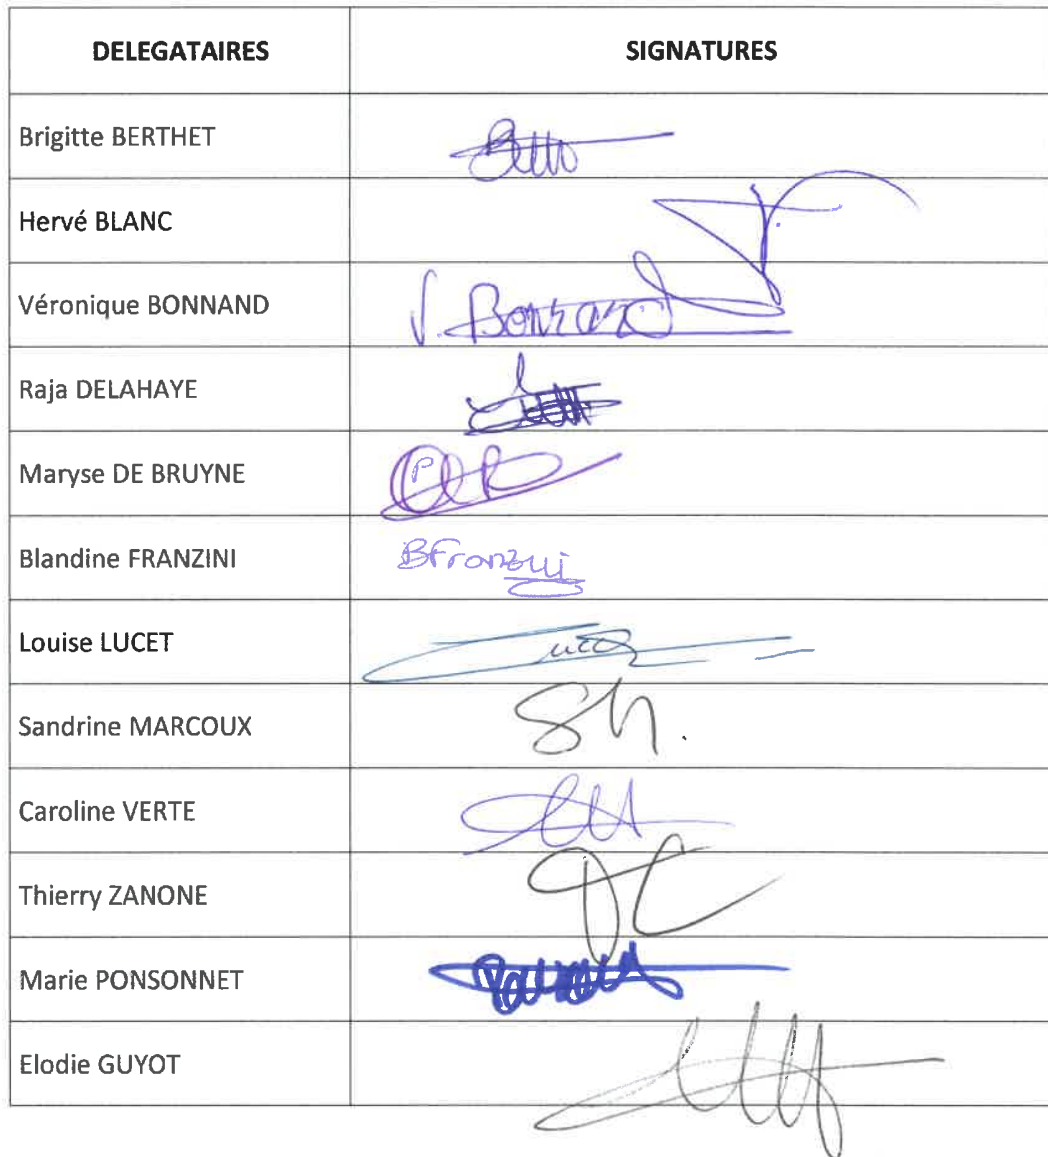 DELEGATAIRES SIGNATURES
Brigitte BERTHET
Hervé BLANC
Véronique BONNAND V. Bonnand
Raja DELAHAYE
Maryse DE BRUYNE
Blandine FRANZINI BFranzini
Louise LUCET
Sandrine MARCOUX
Caroline VERTE
Thierry ZANONE
Marie PONSONNET
Elodie GUYOT